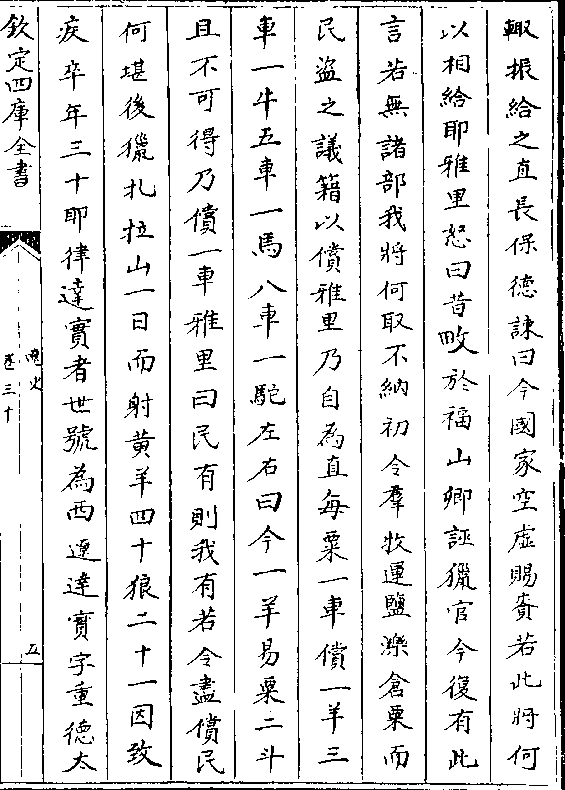 輙振給之直長保德諫曰今國家空虛賜賚若此將何
以相給耶雅里怒曰昔畋於福山卿誣獵官今復有此
言若無諸部我將何取不納初令羣牧運鹽濼倉粟而
民盜之議籍以償雅里乃自為直每粟一車償一羊三
車一牛五車一馬八車一駝左右曰今一羊易粟二斗
且不可得乃償一車雅里曰民有則我有若令盡償民
何堪後獵扎拉山一日而射黃羊四十狼二十一因致
疾卒年三十耶律達實者世號為西遼達實字重德太
欽定四庫全書
遼史
卷三十
五